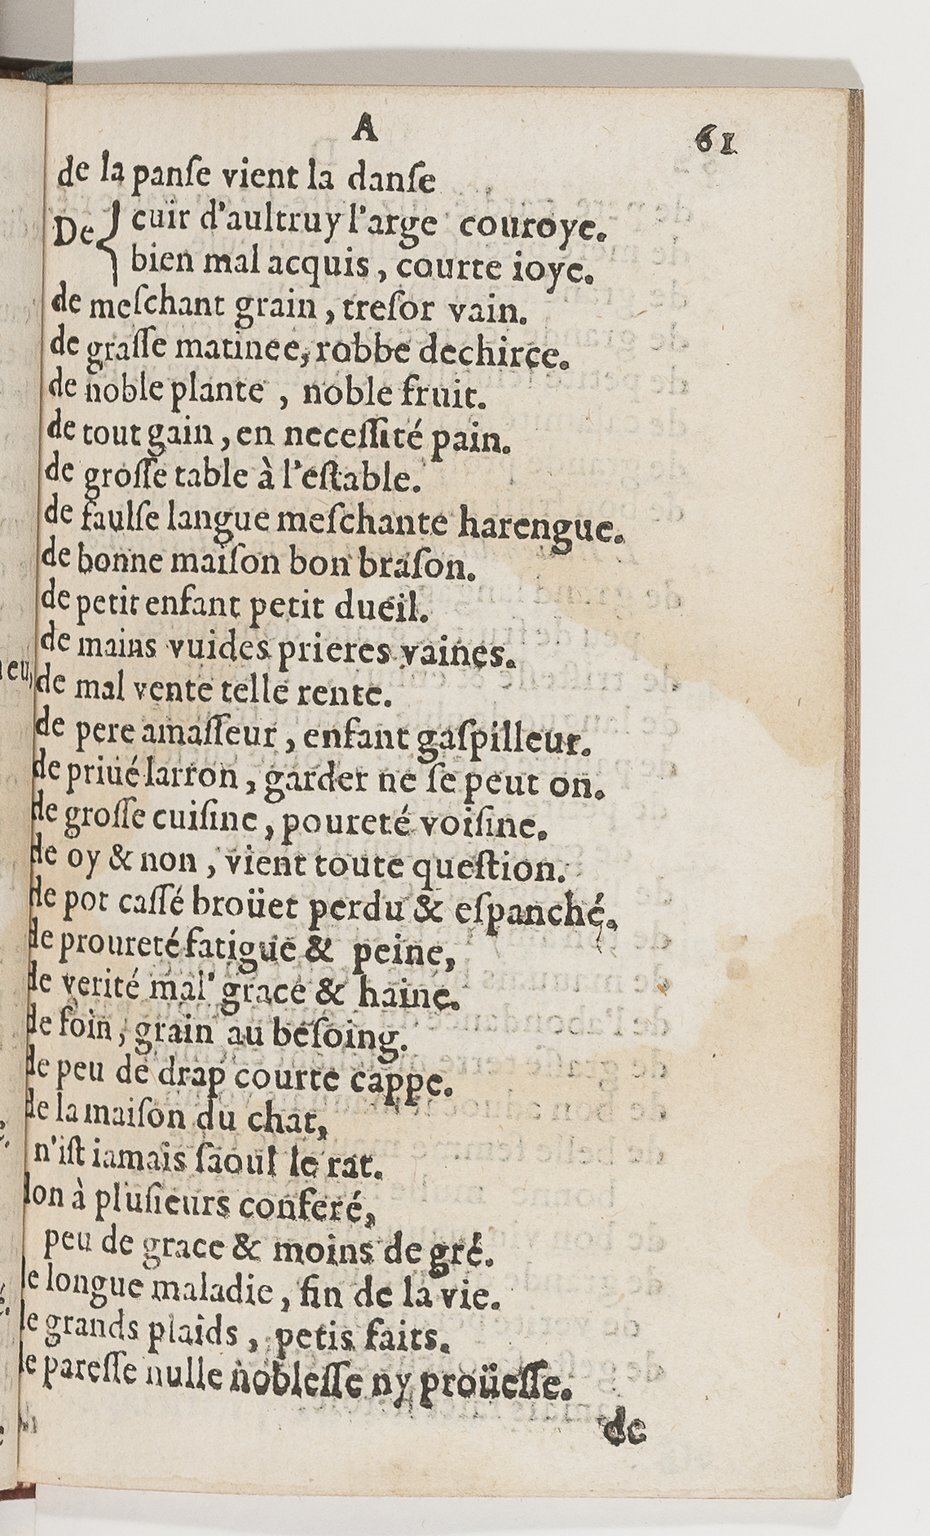 A 61
de la panſe vient la danſe
De { cuir d'aultruy l'arge couroye.
bien mal acquis, courte ioye.
de meſchant grain, treſor vain.
de graſſe matinee, robbe dechiree.
de noble plante, noble fruit.
de tout gain, en neceſſité pain.
de groſſe table à l'eſtable.
de faulſe langue meſchante harengue.
de bonne maiſon bon braſon.
de petit enfant petit dueil.
de mains vuides prieres vaines.
de mal vente telle rente.
de pere amaſſeur, enfant gaſpilleur.
de priué larron, garder ne ſe peut on.
de groſſe cuiſine, poureté voiſine.
de oy & non, vient toute queſtion.
de pot caſſé broüet perdu & eſpanché.
de proureté fatigue & peine,
de verité mal' grace & haine.
de foin, grain au beſoing.
de peu de drap courte cappe.
de la maiſon du chat,
n'iſt iamais ſaoul le rat.
don à pluſieurs conferé,
peu de grace & moins de gré.
de longue maladie, fin de la vie.
de grands plaids, petis faits.
de pareſſe nulle nobleſſe ny proüeſſe.
de